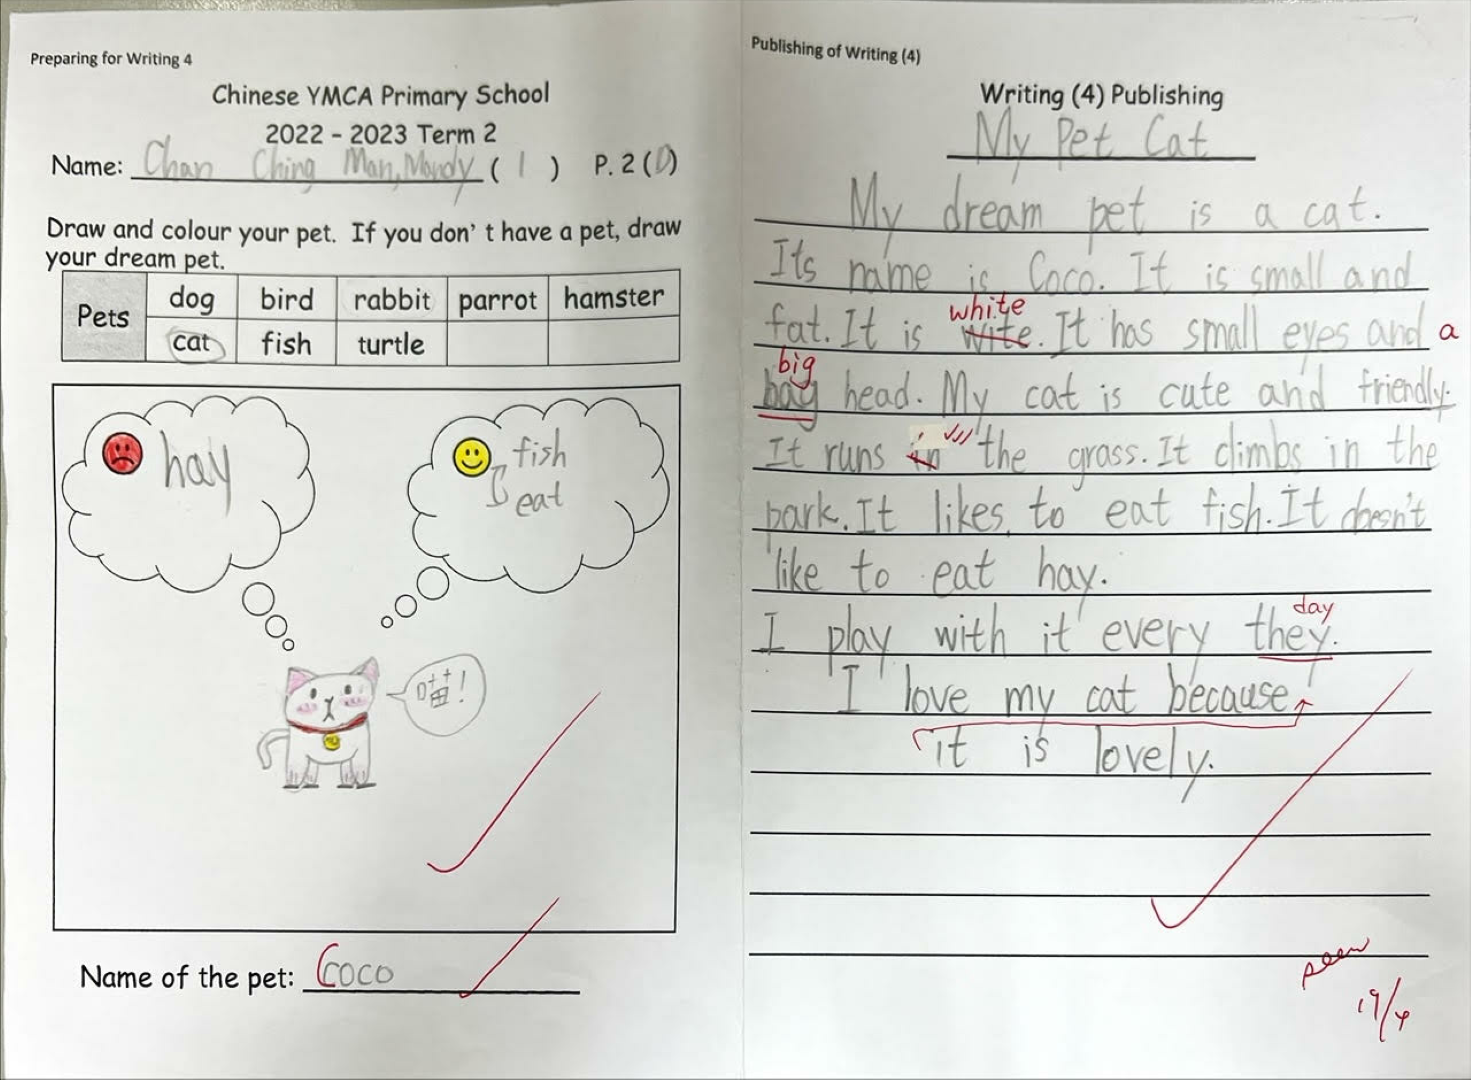 Preparing for Writing 4
Chinese YMCA Primary School
2022 - 2023 Term 2
Name: Chan Ching Man, Mandy ( 1 ) P. 2 (D)
Draw and colour your pet. If you don't have a pet, draw
your dream pet.
Pets dog bird rabbit parrot hamster
cat fish turtle
hay
fish
eat
喵!
Name of the pet: Coco
Publishing of Writing (4)
Writing (4) Publishing
My Pet Cat
My dream pet is a cat.
Its name is Coco. It is small and
white
fat. It is wite. It has small eyes and a
big
bag head. My cat is cute and friendly.
It runs in the grass. It climbs in the
park. It likes to eat fish. It doesn't
like to eat hay.
day
I play with it every they.
I love my cat because
it is lovely.
seen
19/4